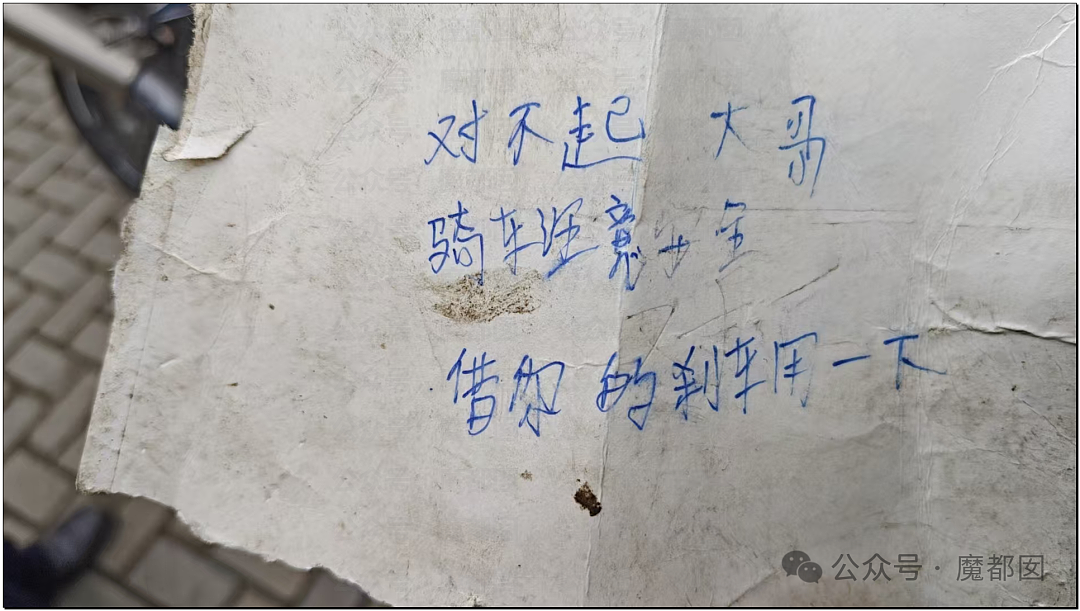 对不起 大哥
骑车注意安全
借你的刹车用一下
公众号·魔都囡